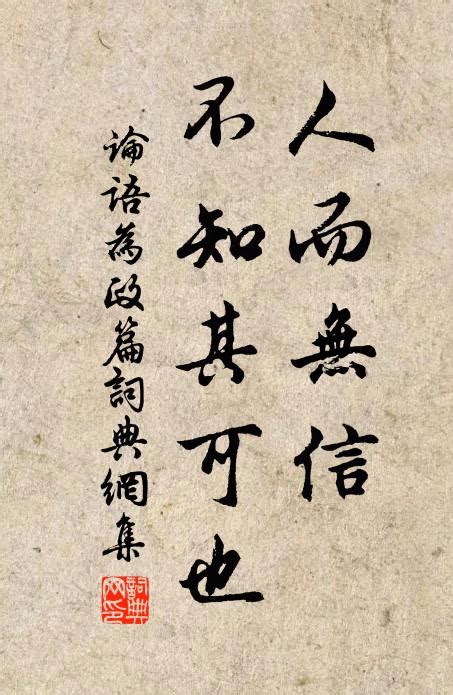 人而無信
不知其可也
論語為政篇詞典網集
詞典
網印